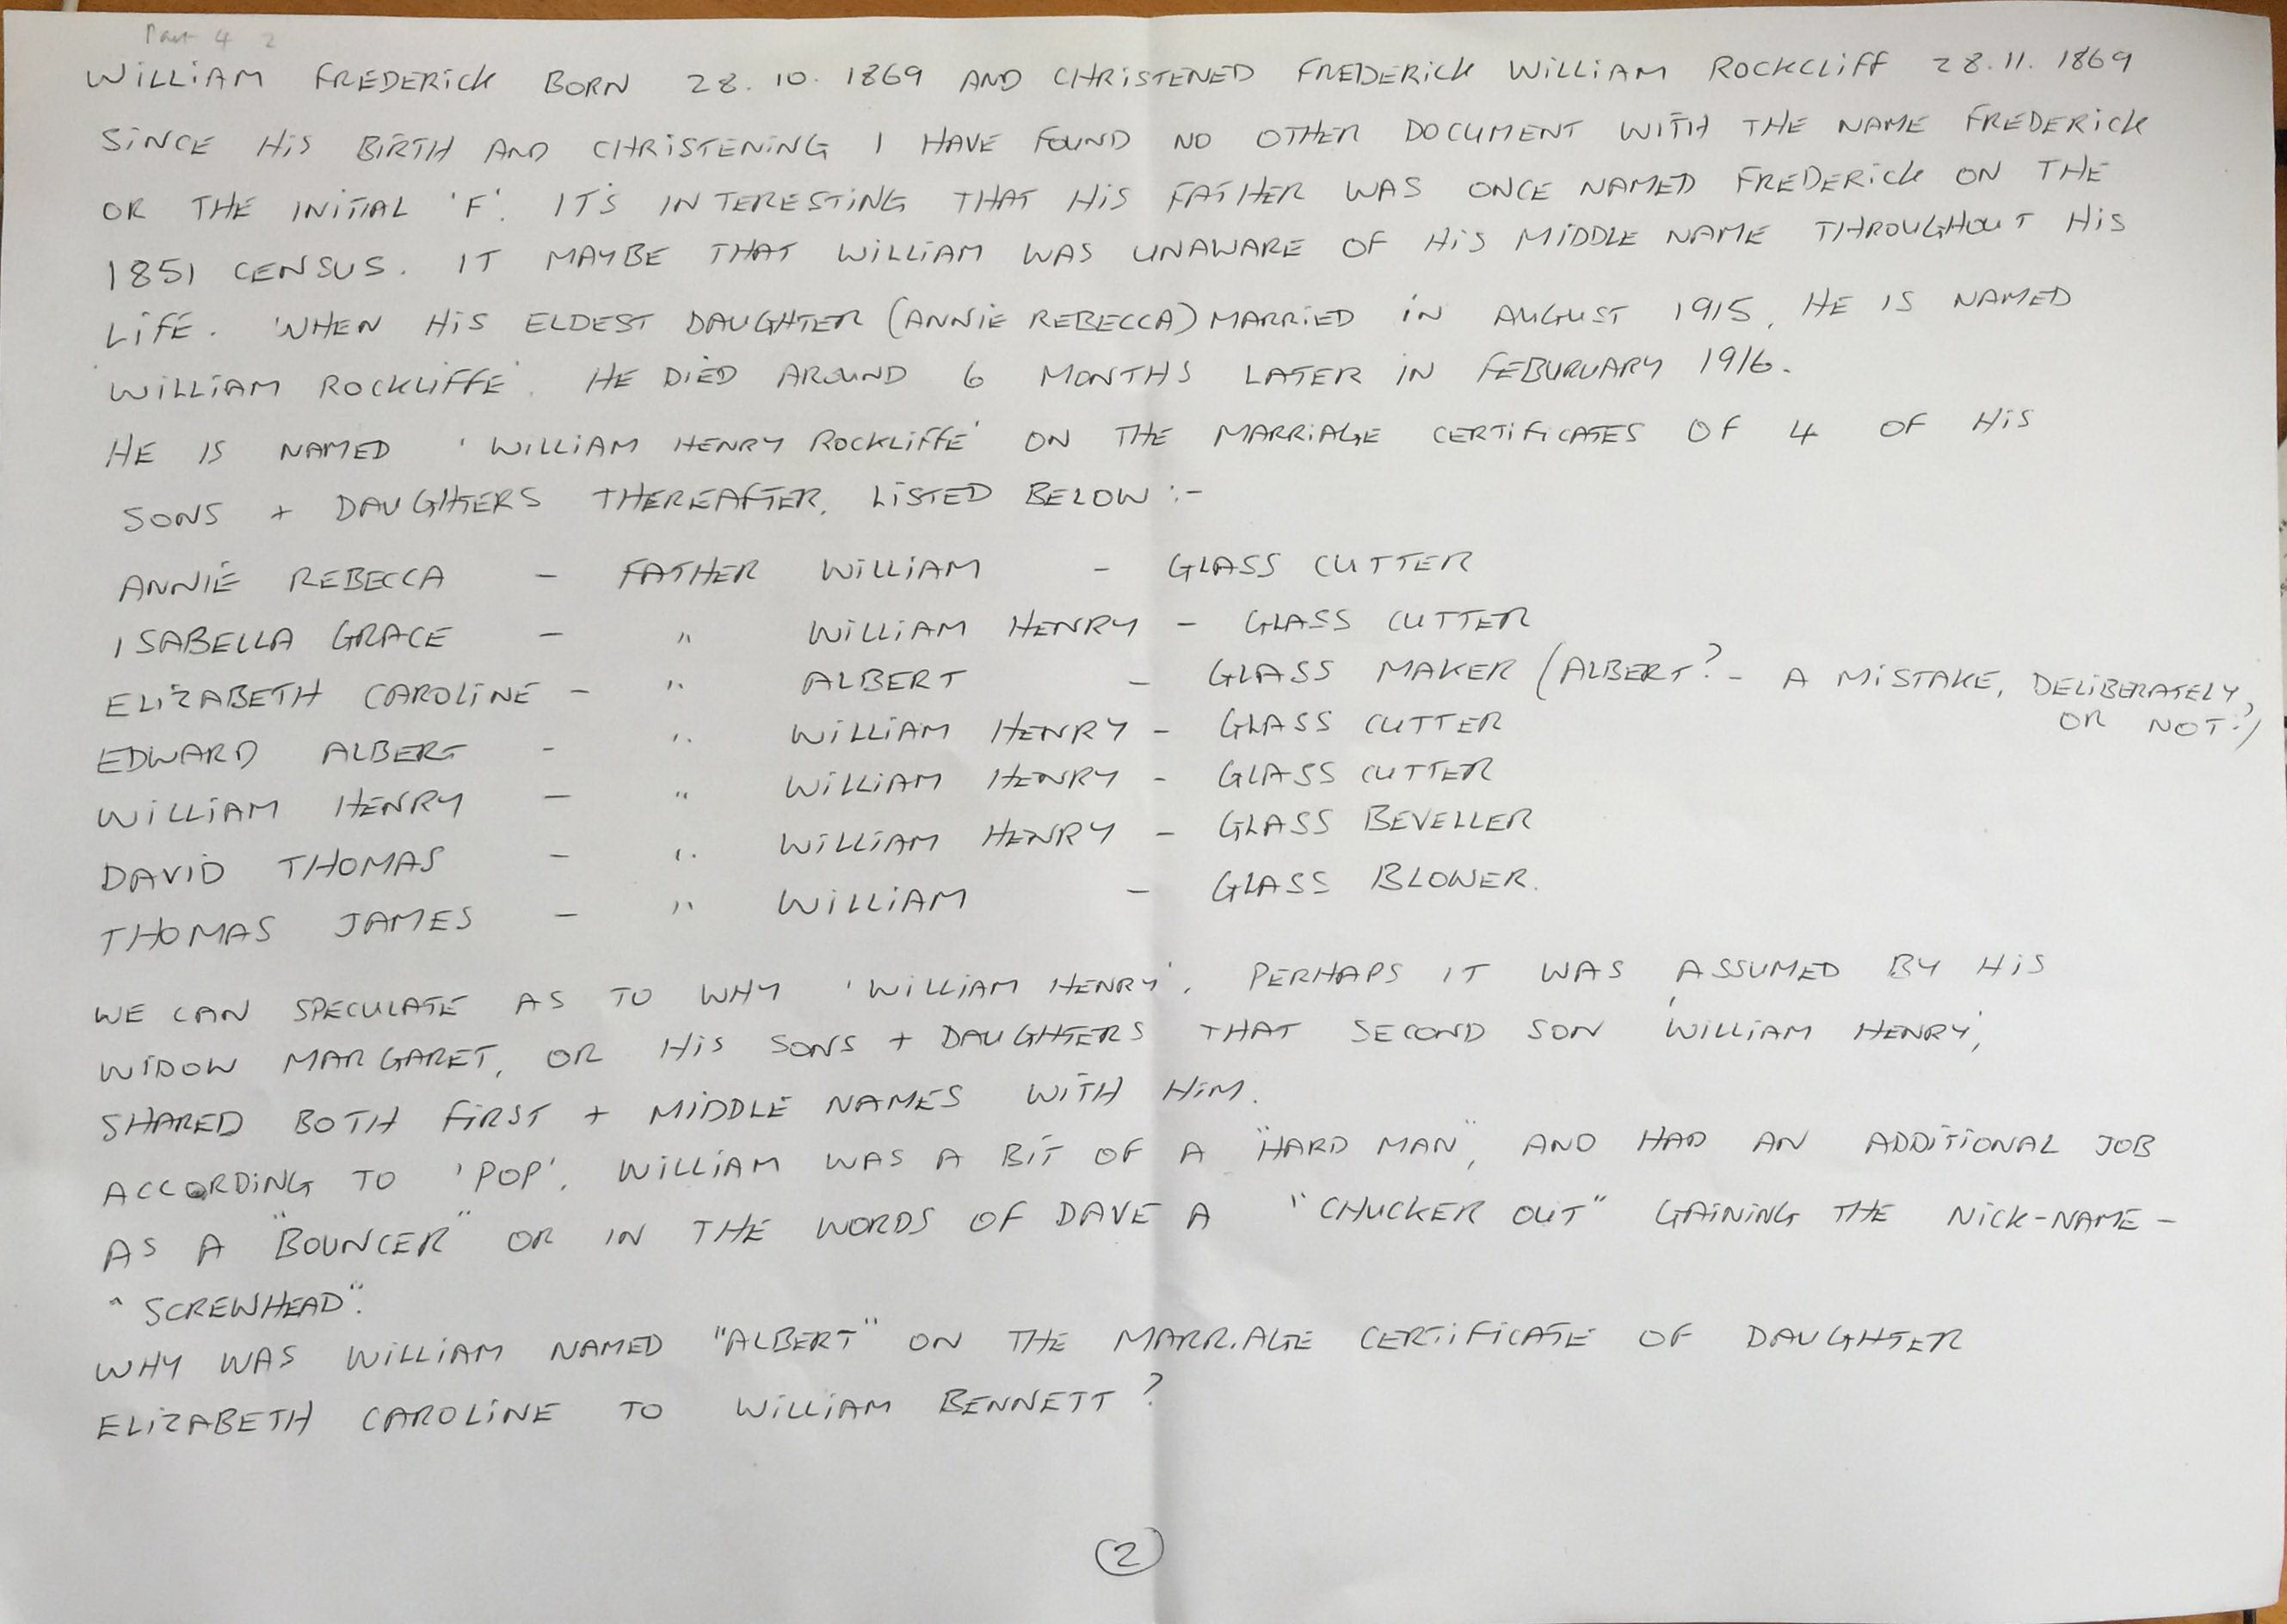 Part 4 2
WILLIAM FREDERICK BORN 28.10.1869 AND CHRISTENED FREDERICK WILLIAM ROCKCLIFF 28.11.1869
SINCE HIS BIRTH AND CHRISTENING I HAVE FOUND NO OTHER DOCUMENT WITH THE NAME FREDERICK
OR THE INITIAL 'F'. IT'S INTERESTING THAT HIS FATHER WAS ONCE NAMED FREDERICK ON THE
1851 CENSUS. IT MAYBE THAT WILLIAM WAS UNAWARE OF HIS MIDDLE NAME THROUGHOUT HIS
LIFE. WHEN HIS ELDEST DAUGHTER (ANNIE REBECCA) MARRIED IN AUGUST 1915, HE IS NAMED
'WILLIAM ROCKLIFFE'. HE DIED AROUND 6 MONTHS LATER IN FEBURUARY 1916.
HE IS NAMED 'WILLIAM HENRY ROCKLIFFE' ON THE MARRIAGE CERTIFICATES OF 4 OF HIS
SONS + DAUGHTERS THEREAFTER, LISTED BELOW :-
ANNIE REBECCA - FATHER WILLIAM - GLASS CUTTER
ISABELLA GRACE - " WILLIAM HENRY - GLASS CUTTER
ELIZABETH CAROLINE - " ALBERT - GLASS MAKER (ALBERT? - A MISTAKE, DELIBERATELY,
OR NOT?)
EDWARD ALBERT - " WILLIAM HENRY - GLASS CUTTER
WILLIAM HENRY - " WILLIAM HENRY - GLASS CUTTER
DAVID THOMAS - " WILLIAM HENRY - GLASS BEVELLER
THOMAS JAMES - " WILLIAM - GLASS BLOWER.
WE CAN SPECULATE AS TO WHY 'WILLIAM HENRY'. PERHAPS IT WAS ASSUMED BY HIS
WIDOW MARGARET, OR HIS SONS + DAUGHTERS THAT SECOND SON 'WILLIAM HENRY',
SHARED BOTH FIRST + MIDDLE NAMES WITH HIM.
ACCORDING TO 'POP', WILLIAM WAS A BIT OF A "HARD MAN", AND HAD AN ADDITIONAL JOB
AS A "BOUNCER" OR IN THE WORDS OF DAVE A "CHUCKER OUT" GAINING THE NICK-NAME -
"SCREWHEAD".
WHY WAS WILLIAM NAMED "ALBERT" ON THE MARRIAGE CERTIFICATE OF DAUGHTER
ELIZABETH CAROLINE TO WILLIAM BENNETT?
2